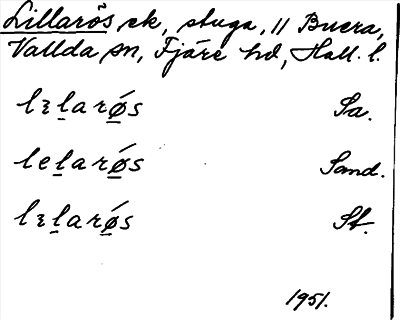 Lillarös ek, stuga, 11 Buera,
Vallda sn, Fjäre hd, Hall. l.
lɛḻarǿ̱s Sa.
leḻarǿ̱s Sand.
lɛḻarǿ̱s St.
1951.